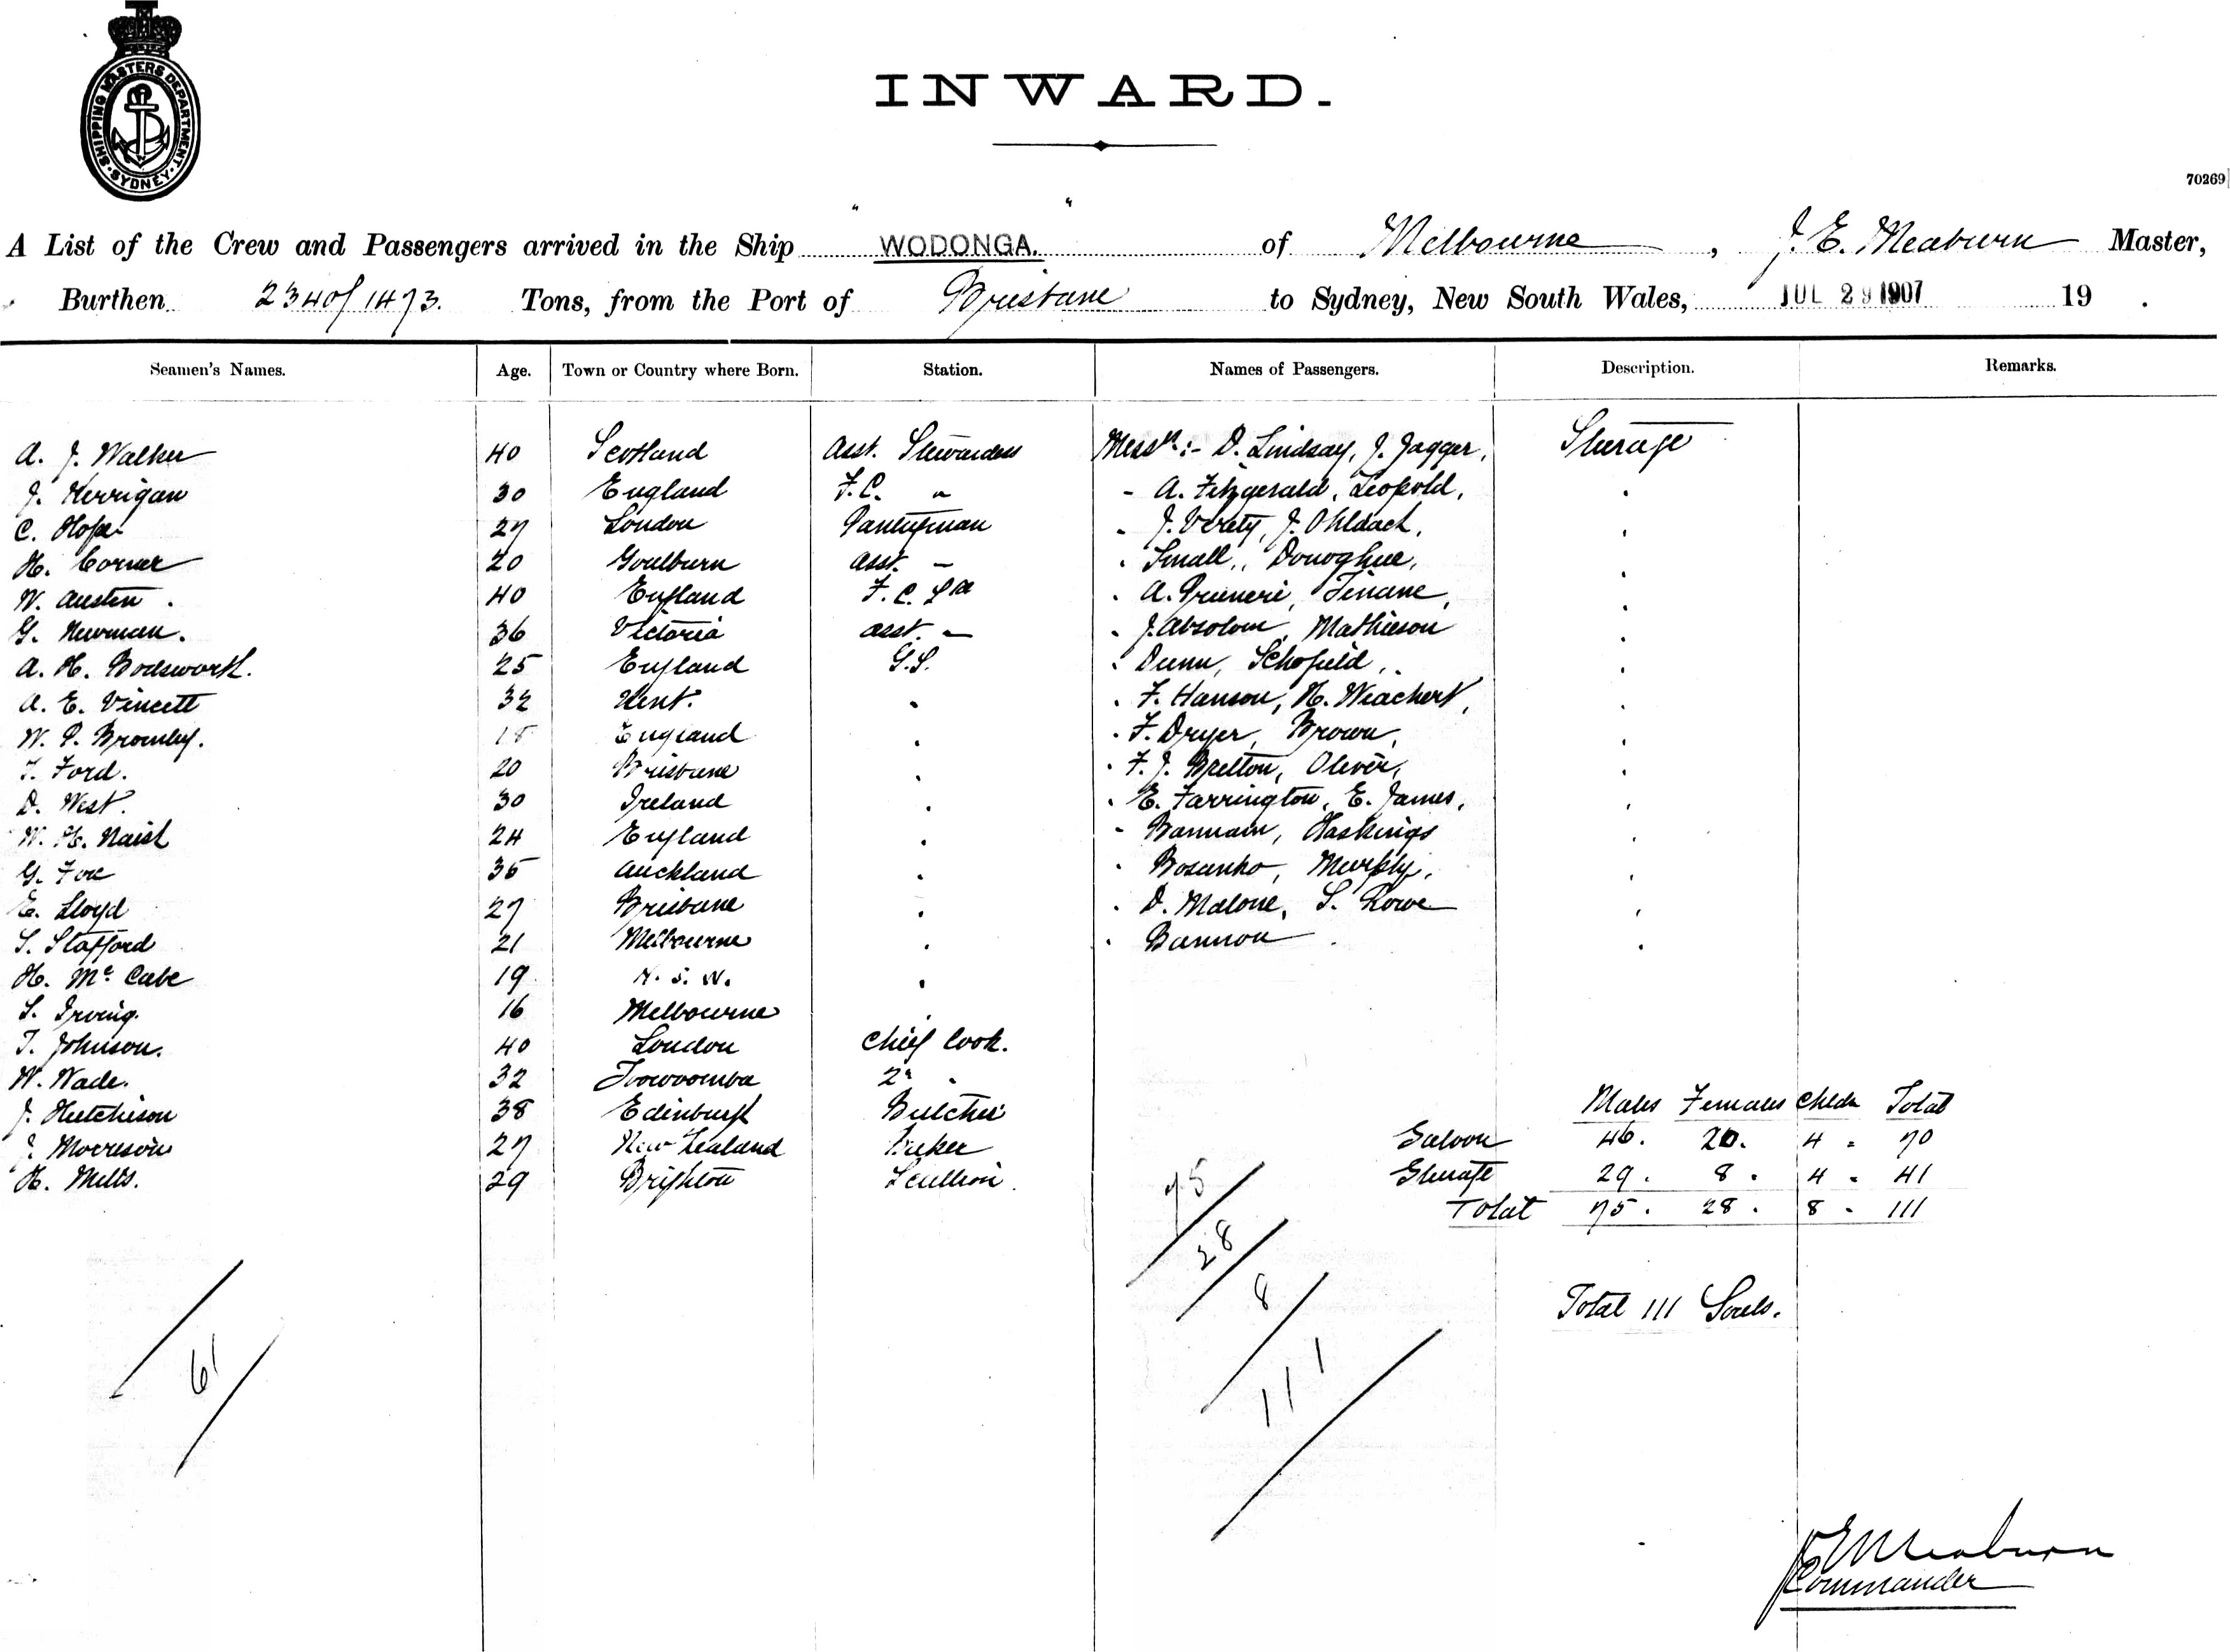 SHIPPING MASTERS DEPARTMENT · SYDNEY ·
INWARD.
70269
A List of the Crew and Passengers arrived in the Ship " WODONGA. " of Melbourne, J. E. Meaburn Master,
Burthen 2340/1473. Tons, from the Port of Brisbane to Sydney, New South Wales, JUL 29 1907 19 .
Seamen's Names. Age. Town or Country where Born. Station. Names of Passengers. Description. Remarks.
A. J. Walker 40 Scotland Asst. Stewardess Messrs:- D. Lindsay, J. Jagger, Steerage
J. Kerrigan 30 England F.C. " - A. Fitzgerald, Leopold, .
C. Hope 27 London Pantryman - J. Verety, J. Ohldach, .
H. Corner 20 Goulburn Asst. - . Small, Donoghue, .
W. Austen . 40 England F. C. . A. , Finane, .
G. Newman. 36 Victoria Asst. - . J. Absolom, Mathieson .
A. H. Bodsworth. 25 England G.S. . Dunn, Schofield, .
A. E. Vincett 32 Kent. . . F. Hanson, H. Wiachert, .
W. P. Bromley. 18 England . . F. Dryer, Brown, .
T. Ford. 20 Brisbane . . F. J. Bretton, Oliver, .
D. West. 30 Ireland . . E. Farrington, E. James, .
W. H. Naish 24 England . - Bannam, Haskings .
G. Fox 35 Auckland . . Bosanko, Murphy, .
E. Lloyd 27 Brisbane . . D. Malone, S. Rowe .
S. Stafford 21 Melbourne . . Bannon .
H. McCabe 19 N. S. W. .
S. Irving. 16 Melbourne .
T. Johnson. 40 London Chief Cook.
W. Wade. 32 Toowoomba 2n "
J. Hutchison 38 Edinburgh Butcher
J. Morrison 27 New Zealand Baker
H. Mills. 29 Brighton Scullion.
Males Females Chldn Total
Saloon 46. 20. 4 - 70
Steerage 29. 8. 4 - 41
Total 75. 28. 8 - 111
75
28
8
111
61
Total 111 Souls.
J E Meaburn
Commander